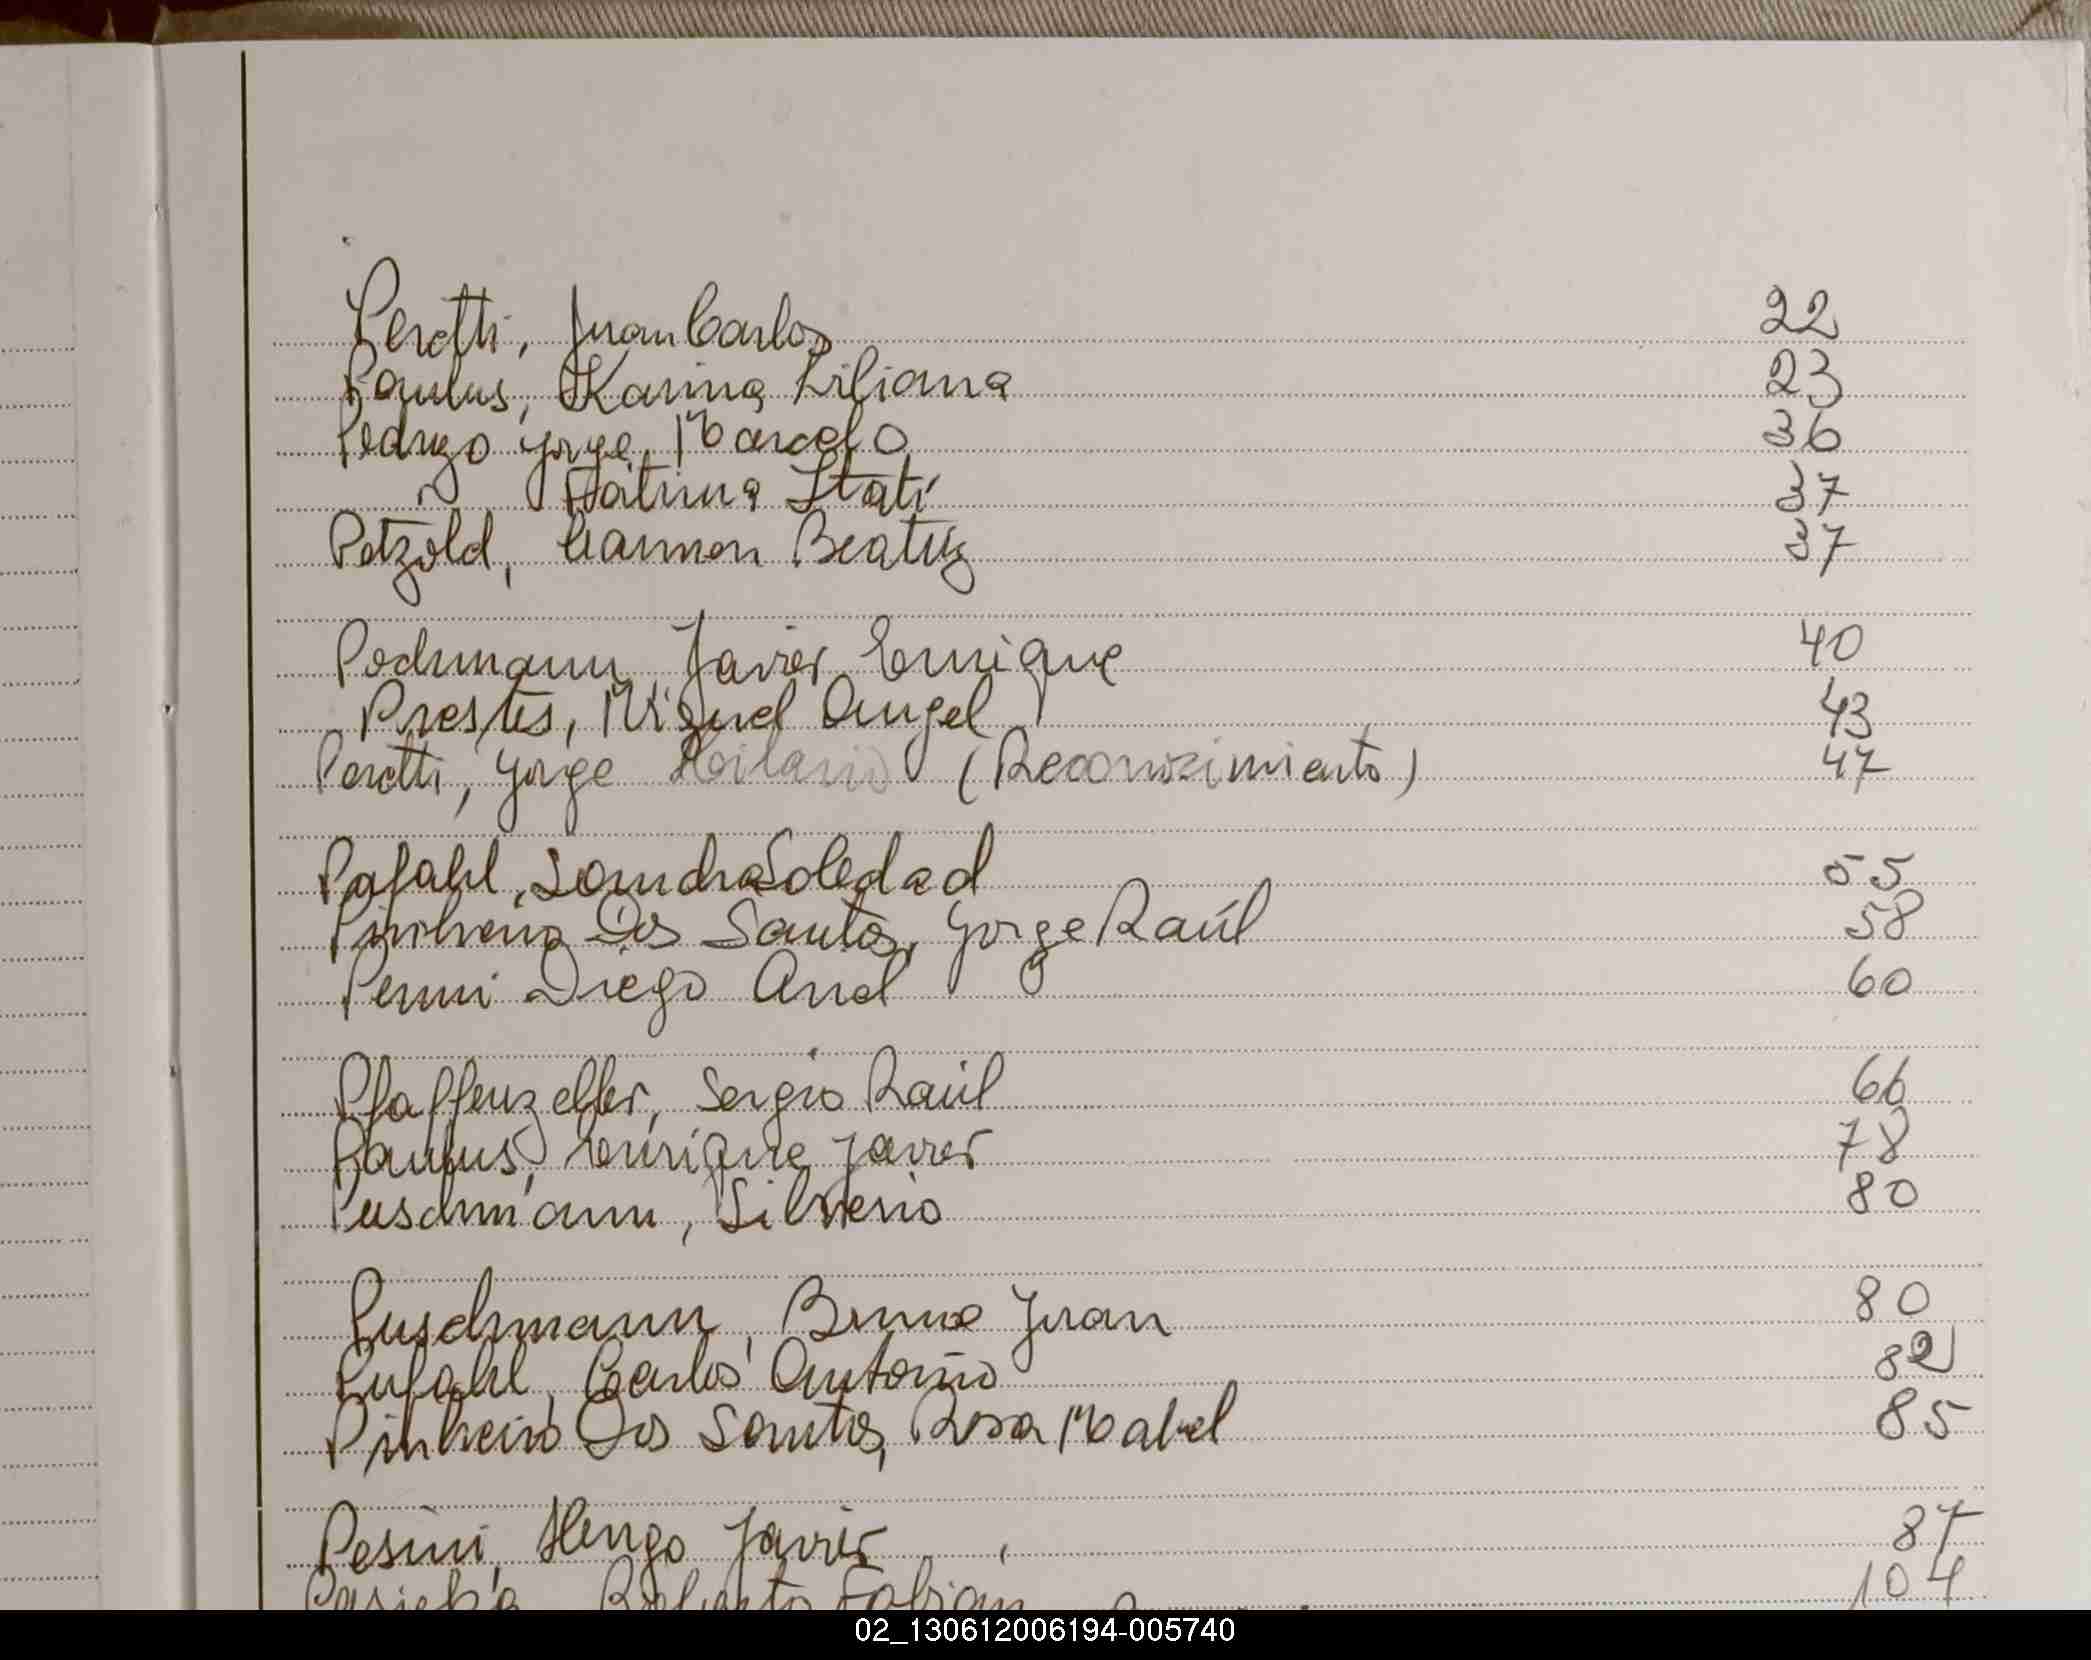 Peretti, Juan Carlos 22
Paulus, Karina Liliana 23
Pedrozo Jorge Marcelo 36
" Fátima Itatí 37
Petzold, Carmen Beatriz 37
Pochmann Javier Enrique 40
Prestes, Miguel Angel 43
Peretti, Jorge Hilario (Reconocimiento) 47
Pafahl, Sandra Soledad 55
Pinheiro Dos Santos, Jorge Raúl 58
Penni Diego Ariel 60
Pfaffenzeller, Sergio Raúl 66
Paulus, Enrique Javier 78
Puschmann, Silverio 80
Puschmann, Bruno Juan 80
Pufahl, Carlos Antonio 82
Pinheiro Dos Santos, Rosa Mabel 85
Pesini, Hugo Javier 87
Roberto Fabian 104
02_130612006194-005740